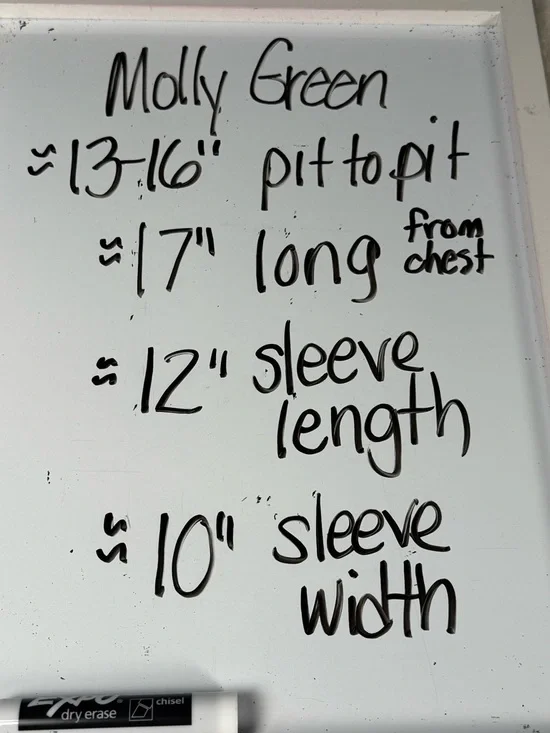 Molly Green
≈ 13-16" pit to pit
≈ 17" long from chest
≈ 12" sleeve length
≈ 10" sleeve width
EXPO® chisel
dry erase